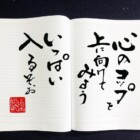 心のコップを
上に向けて
みよう
いっぱい
入るぞお